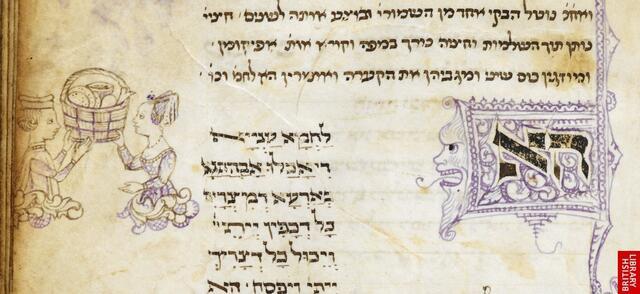 ואחר נוטל הבקי אחד מן השמורי׳ ובוצע אותה לשנים׳ חציי׳
נותן תוך השלמות וחציה כורך במפה וקורא אות׳ אפיקומן׳
ומוזגין כוס שיני ומגביהין את הקערה ואומרין הא לחמ׳ וכו׳
הא
לחמא עניא
די אכלו אבהתנא
בארעא דמצרים
כל דכפין ייתי
וייכול כל דצריך
ייתי ויפסח׳ הא
BRITISH
LIBRARY